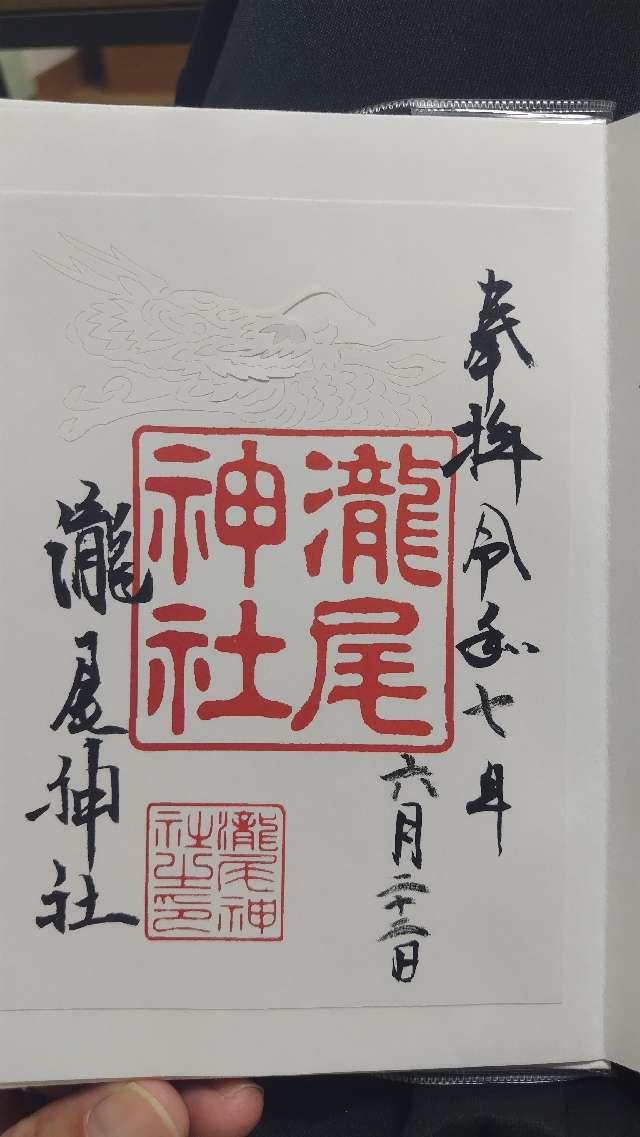 奉拝 令和七年
六月二十三日
瀧尾
神社
瀧尾神
社之印
瀧尾神社